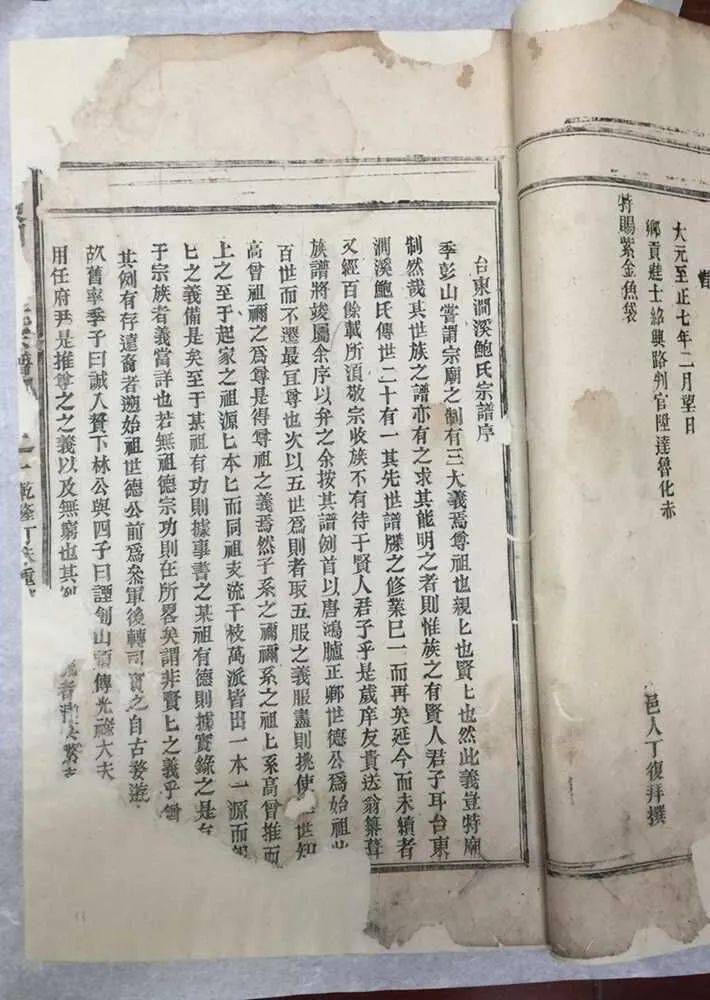 大元至正七年二月望日
鄉貢進士紹興路判官陞達魯化赤
特賜紫金魚袋
邑人丁復拜撰
台東澗溪鮑氏宗譜序
季彭山嘗謂宗廟之制有三大義焉尊祖也親匕也賢匕也然此義豈特廟
制然哉其世族之譜亦有之求其能明之者則惟族之有賢人君子耳台東
澗溪鮑氏傳世二十有一其先世譜牒之修業巳一而再矣延今而未續者
又經百餘載所須敬宗收族不有待于賢人君子乎是歲庠友貴送翁纂葺
族譜將竣屬余序以弁之余按其譜例首以唐鴻臚正卿世德公爲始祖
百世而不遷最宜尊也次以五世爲則者取五服之義服盡則挑使 世知
高曾祖禰之爲尊是得尊祖之義焉然子系之禰禰系之祖上系高曾推而
上之至于起家之祖源匕本匕而同祖支流千枝萬派皆出一本一源而
匕之義備是矣至于某祖有功則據事書之某祖有德則據實錄之是
于宗族者義當詳也若無祖德宗功則在所畧矣謂非賢匕之義乎
其例有存遠裔者遡始祖世德公前爲叅軍後轉司賓之自古婺遊
故舊率季子曰誠入贅下林公與四子曰諲 山 傳光祿大夫
用任府尹是推尊之之義以及無窮也其
者
乾隆丁 重